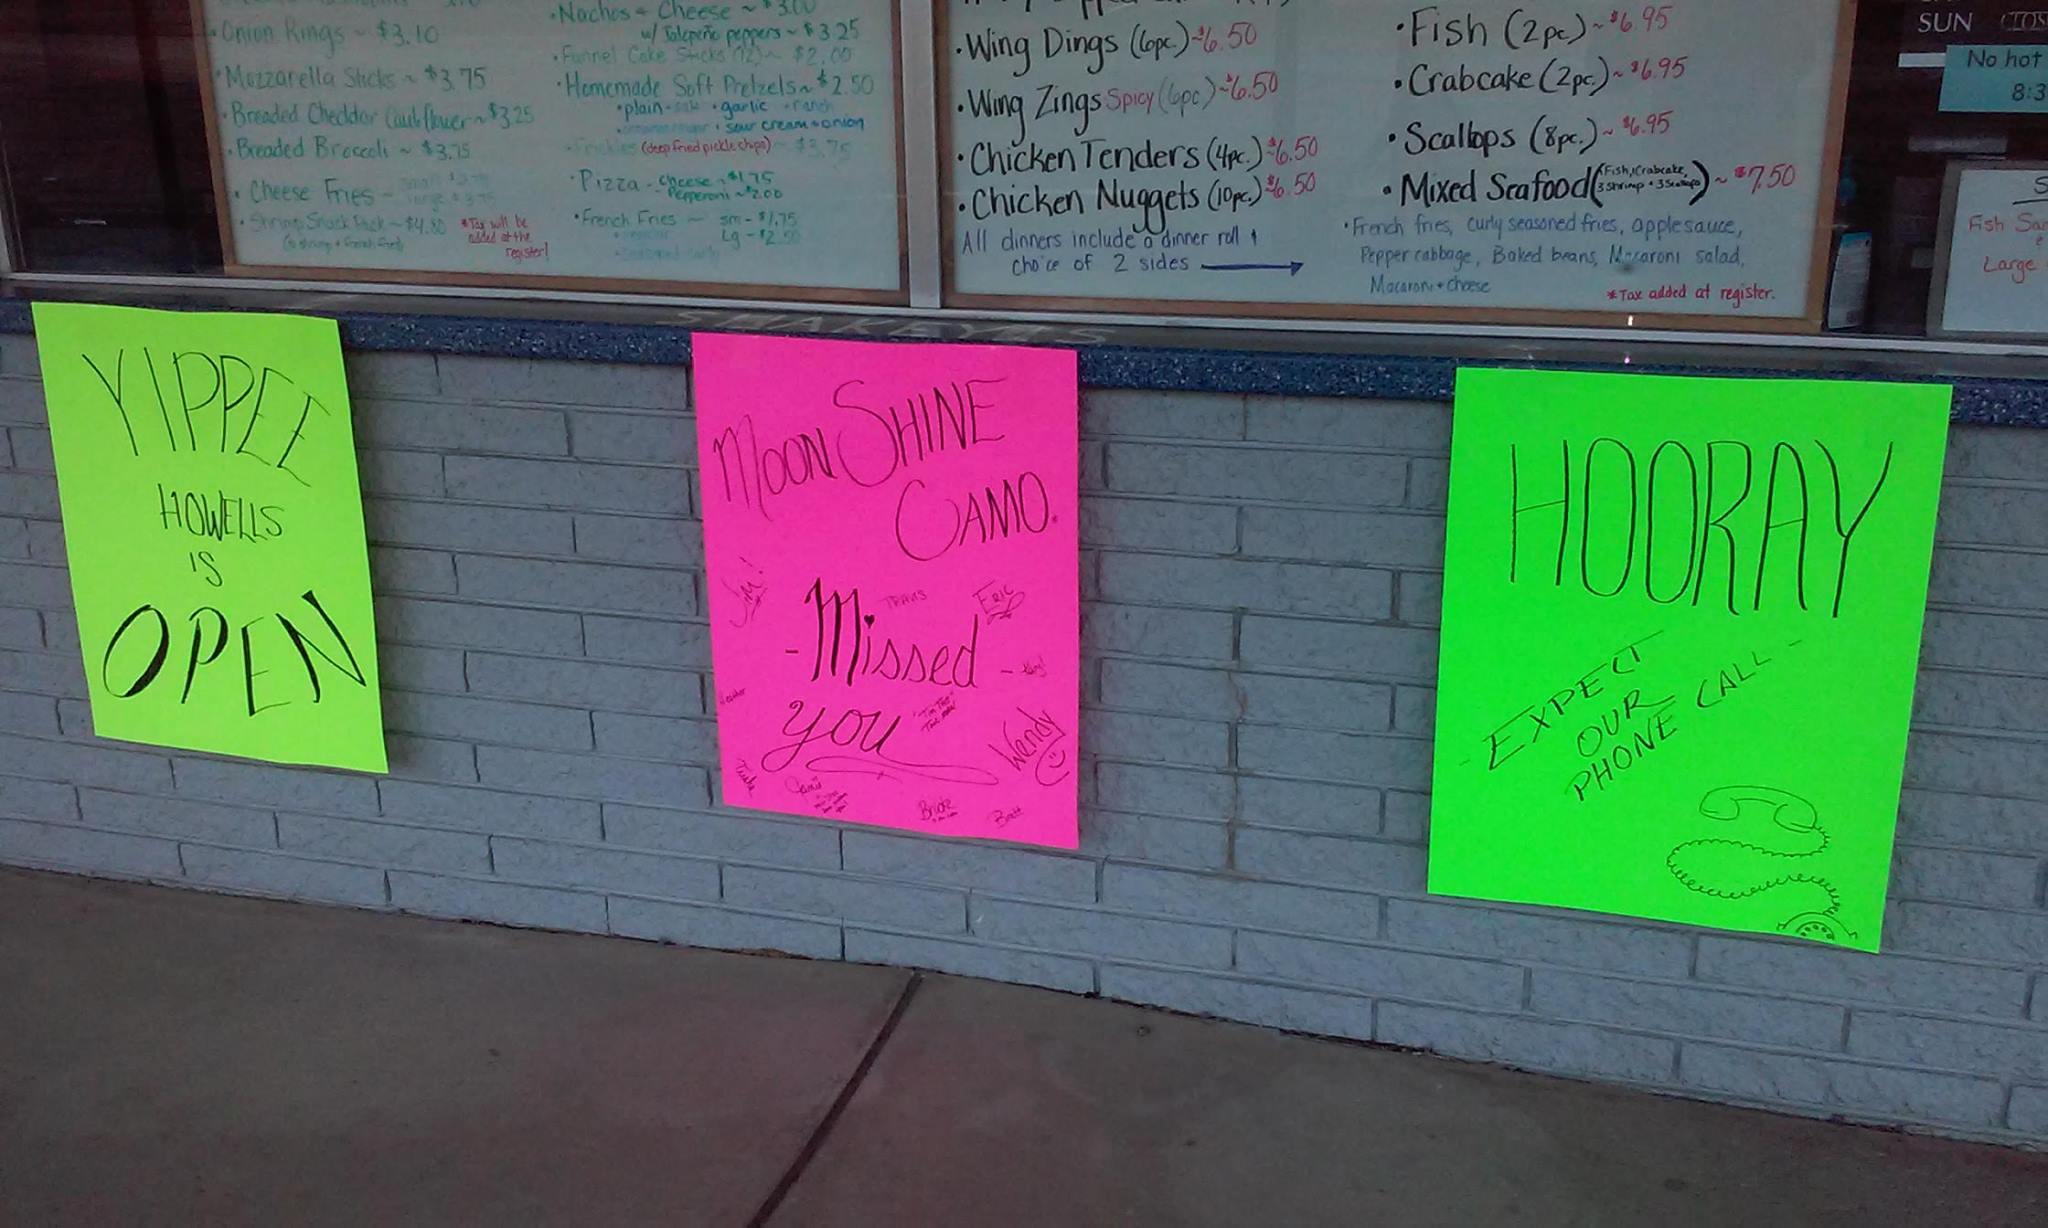 Onion Rings ~ $3.10
Mozzarella Sticks ~ $3.75
Breaded Cheddar Cauliflower ~ $3.25
Breaded Broccoli ~ $3.75
Cheese Fries ~
Shrimp Snack Pack ~ $4.80
(6 shrimp + french fries)
*Tax will be
added at the
register!
Nachos + Cheese ~ $3.00
w/ Jalepeño peppers ~ $3.25
Funnel Cake Sticks (12) ~ $2.00
Homemade Soft Pretzels ~ $2.50
•plain •salt •garlic •ranch
• sour cream + onion
•Frickles (deep fried pickle chips) ~ $3.75
•Pizza - Cheese ~ $1.75
Pepperoni ~ $2.00
•French Fries ~ sm - $1.75
Lg - $2.50
•Wing Dings (6pc.) ~ $6.50
•Wing Zings Spicy (6pc.) ~ $6.50
•Chicken Tenders (4pc.) $6.50
•Chicken Nuggets (10pc.) $6.50
All dinners include a dinner roll +
choice of 2 sides
•Fish (2pc.) ~ $6.95
•Crabcake (2pc.) ~ $6.95
•Scallops (8pc.) ~ $6.95
•Mixed Seafood (Fish, 1Crabcake,
3 Shrimp + 3 Scallops) ~ $7.50
•French fries, curly seasoned fries, applesauce,
Pepper cabbage, Baked beans, Macaroni salad,
Macaroni + cheese
*Tax added at register.
SUN
No hot
8:3
Fish San
Large
SHAKEY
YIPPEE
HOWELLS
IS
OPEN
MOONSHINE
CAMO.
Jim!
TRAVIS
ERIC
- Missed -
you
Heather
Wendy
Jamie
Brooke
Brett
HOORAY
- EXPECT
OUR
PHONE CALL -